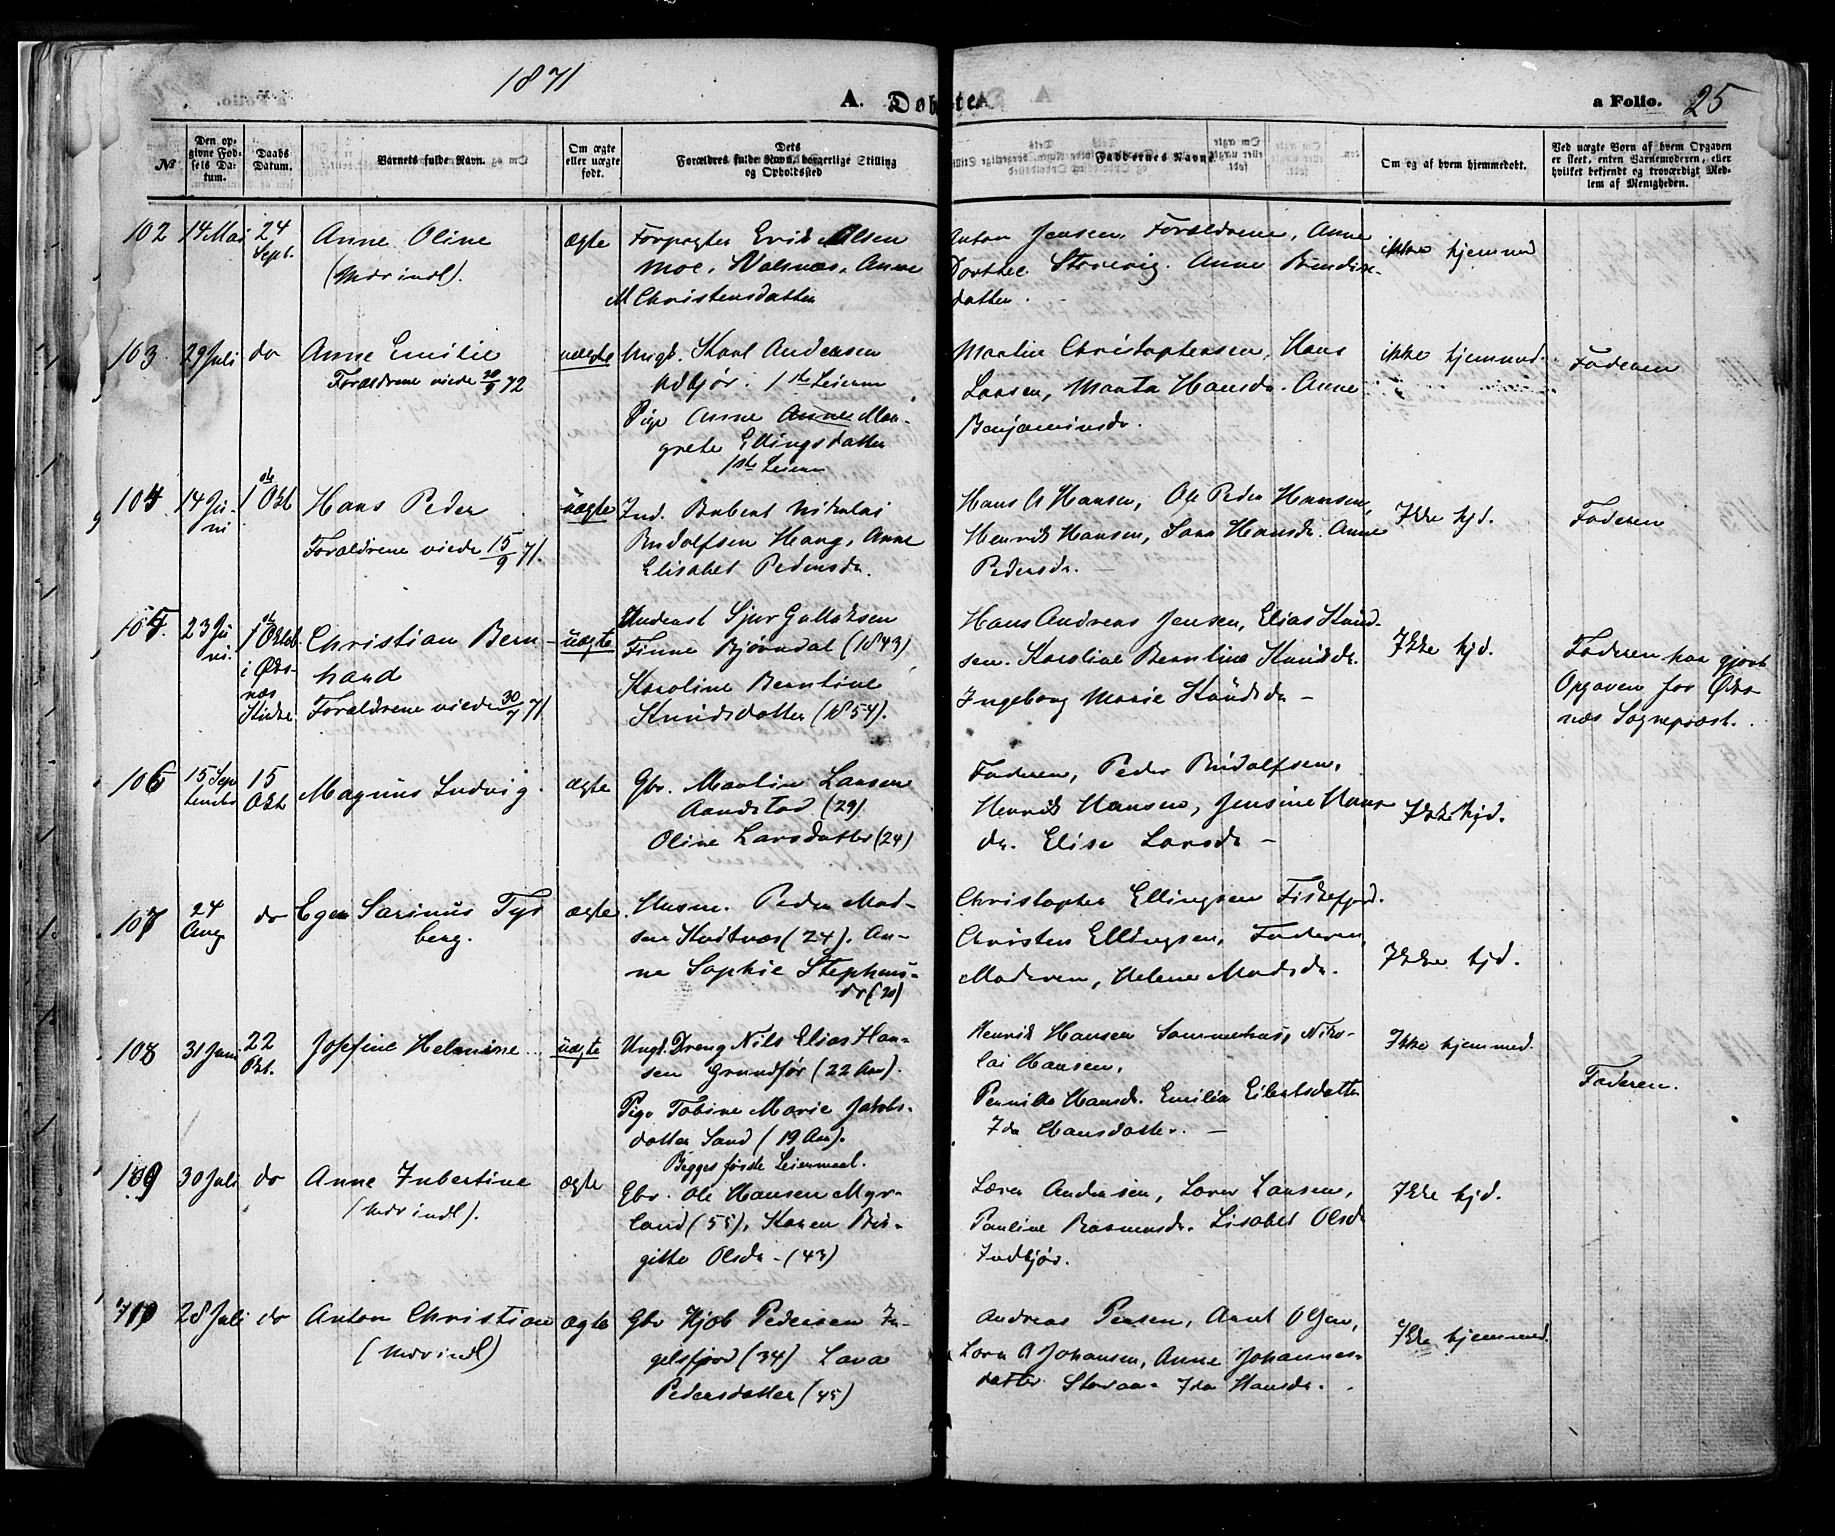 1871
A. Døbte.
a Folio. 25
№
Den op-
givne Fød-
sels Da-
tum.
Daabs
Datum.
Barnets fulde Navn.
Om ægte
eller uægte
født.
Dets
Forældres fulde Navn, borgerlige Stilling
og Opholdssted
Faddernes Navne
Om og af hvem hjemmedøbt.
Ved uægte Børn af hvem Opgaven
er skeet, enten Barnemoderen, eller
hvilket bekjendt og troværdigt Med-
lem af Menigheden.
102
14 Mai
24
Sept.
Anne Oline
(Mdr indl).
ægte
Forpagter Erik Olsen
Moe, Valsnæs, Anne
M Christensdatter
Anton Jensen, Forældrene, Anne
Dorthee Storevig. Anne Bendix-
datter. -
ikke hjemmed
103
29 Juli
do
Anne Emilie
Forældrene viede 20/9 72
uægte
Ungk. Karl Andersen
Indbjør. 1ste Leierm
Pige Anne Anne Mar-
grete Ellingsdatter
1ste Leierm
Martin Christophersen, Hans
Larsen, Marta Hansdr. Anne
Benjaminsdr.
ikke hjemmed.
Faderen
104
14 Ju-
ni
1ste Okt
Hans Peder
Forældrene viede 15/9 71.
uægte
Ind. Bubert Nikolai
Rudolfsen Haug, Anne
Elisabet Pedersdr.
Hans A Hansen, Ole Peder Hansen,
Henrik Hansen, Sara Hansdr. Anne
Pedersdr. -
Ikke hjd.
Faderen
105.
23 Ju
ni.
1ste Oktob
i Øks-
næs
Kirke
Christian Bern-
hard
Forældrene viede 30/7 71
uægte
Inderst Sjur Gullaksen
Finne Bjørndal (1843)
Karoline Berntine
Knudsdatter (1854).
Hans Andreas Jensen, Elias Knud-
sen. Karoline Berntine Knudsdr.
Ingeborg Marie Knudsdr -
Ikke hjd.
Faderen har gjort
Opgaven for Øks-
næs Sognepræst.
106
15 Sep
tembr
15
Okt
Magnus Ludvig.
ægte
Gbr. Martin Larsen
Aandstad (29)
Oline Larsdatter (24)
Faderen, Peder Rudolfsen,
Henrik Hansen, Jensine Hans
dr. Elise Larsdr -
Ikke hjd.
107
24
Aug
do
Egen Sarinus Tys
berg.
ægte
Husm. Peder Mad-
sen Kvitnæs (24). An-
ne Sophie Stephens-
dr (20)
Christopher Ellingsen Fiskefjord.
Christen Ellingsen, Faderen,
Moderen, Helene Madsdr.
Ikke hjd.
108
31 Janu
22
Okt.
Josefine Helmine
uægte
Ungk. Dreng Nils Elias Han-
sen Grundfør (22 Aar).
Pige Tobine Marie Jakobs-
datter Sand (19 Aar).
Begges første Leiermaal.
Henrik Hansen Sommerhus, Niko-
lai Hansen,
Pernille Hansdr. Emilie Eilertsdatter
Ida Hansdatter. -
Ikke hjemmed.
Faderen.
109
30 Juli
do
Anne Jubertine
(Mdr indl).
ægte
Gbr. Ole Hansen Myr-
land (55), Karen Bir-
gitte Olsdr - (43)
Lars Andersen, Lars Larsen,
Pauline Rasmusdr. Lisabet Olsdr
Indbjør.
Ikke hjd.
110
28 Juli
do
Anton Christian
(Mdr indl)
ægte
Gbr Hjøb Pedersen In-
gelsfjord (34) Lava
Pedersdatter (45)
Andreas Pensen, Arnt Olsen,
Lars A Johansen, Anne Johannes-
datter Storaa - Ida Hansdr.
Ikke hjemmed.